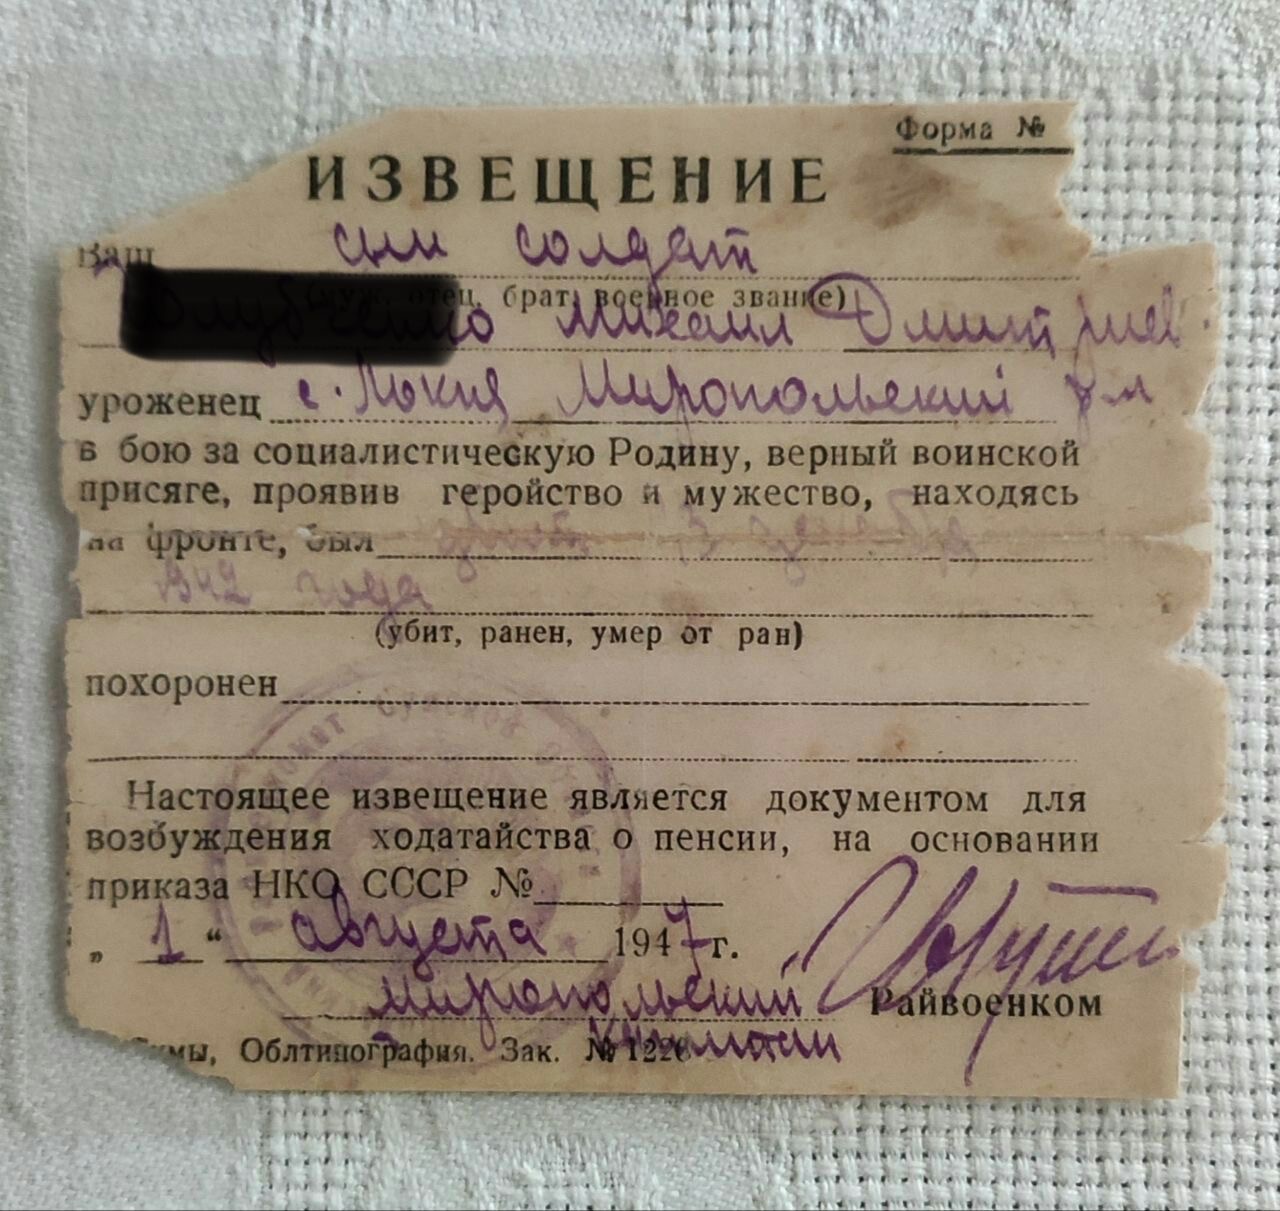 Форма №
ИЗВЕЩЕНИЕ
Ваш сын солдат
(муж, отец, брат, военное звание)
Михаил Дмитриев.
уроженец с. Миропольский р-н
в бою за социалистическую Родину, верный воинской
присяге, проявив геройство и мужество, находясь
на фронте, был убит 13 декабря
1942 года
(убит, ранен, умер от ран)
похоронен
Настоящее извещение является документом для
возбуждения ходатайства о пенсии, на основании
приказа НКО СССР №
„ 1 “ августа 1947 г.
Миропольский Райвоенком
Сумы, Облтипография. Зак. № 122